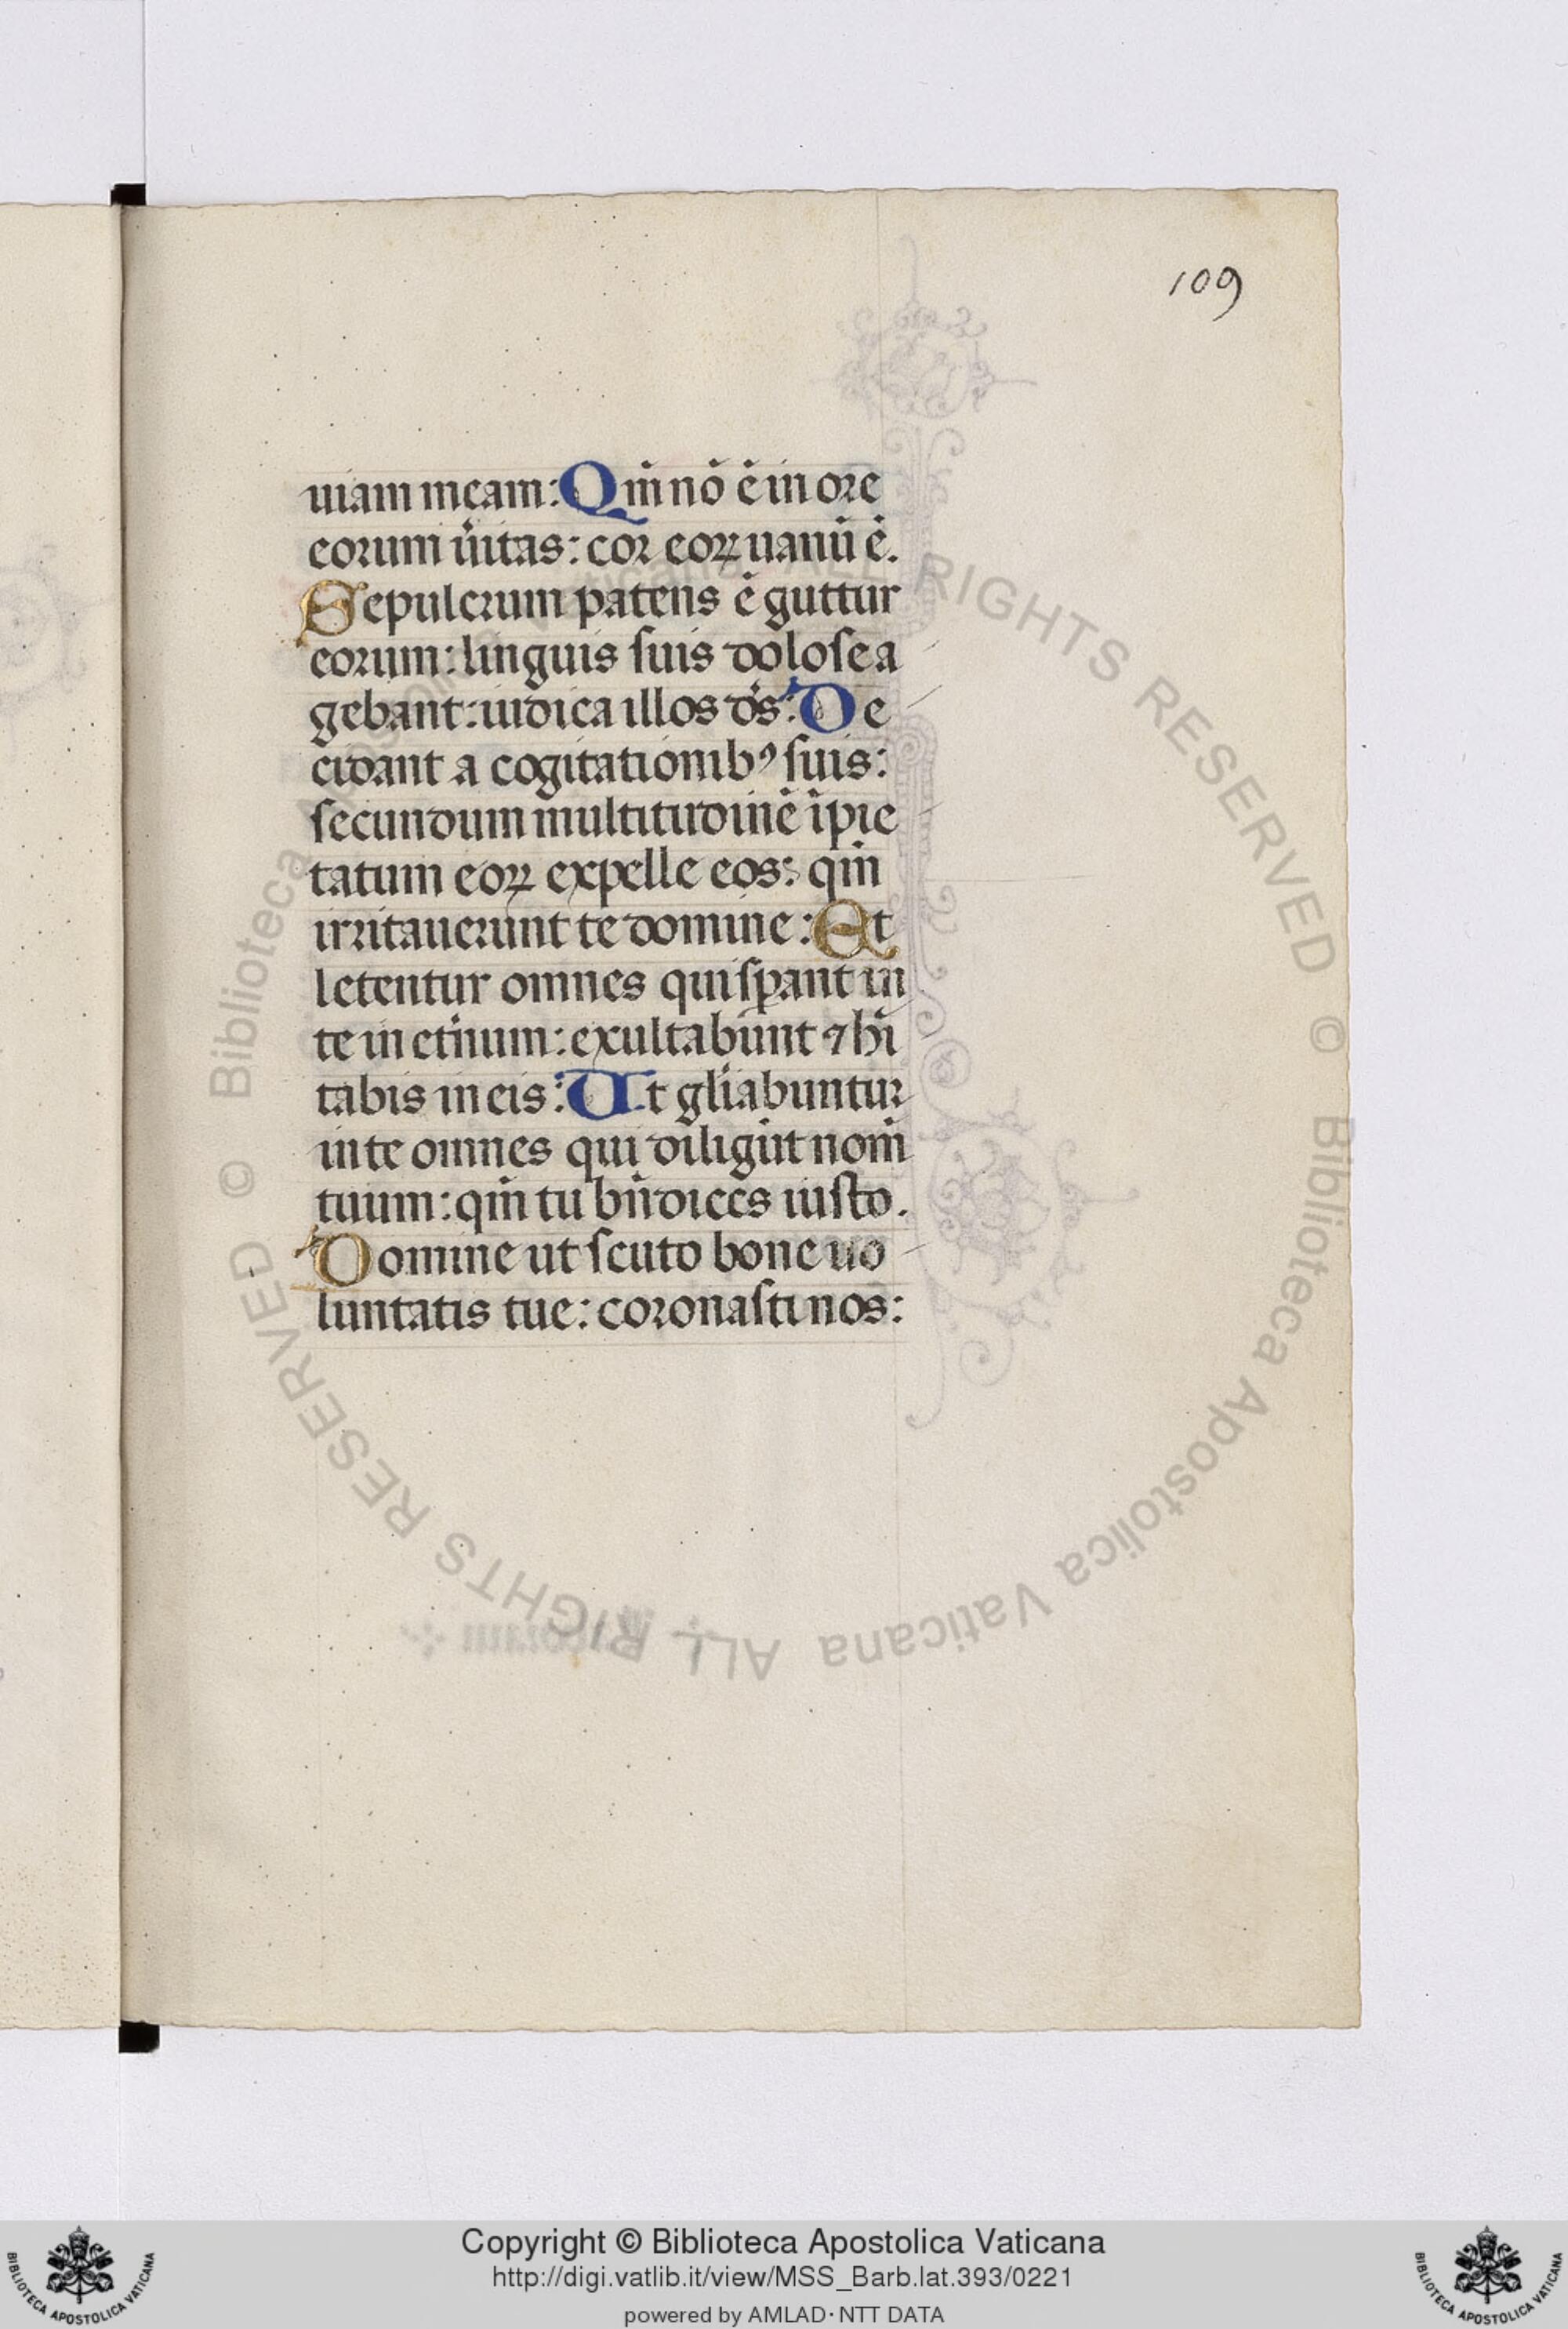 109
uiam meam: Qm̄ nō ē in ore
eorum ūitas: cor eoꝝ uanū ē.
Sepulcrum patens ē guttur
eorum: linguis suis dolose a
gebant: iudica illos d̄s: De
cidant a cogitationibꝰ suis:
secundum multitudinē īpie
tatum eoꝝ expelle eos: qm̄
irritauerunt te domine: Et
letentur omnes qui sꝑant in
te in et̄num: exultabunt ⁊ hī
tabis in eis: Ut gl̄iabuntur
in te omnes qui diligūt nom̄
tuum: qm̄ tu bn̄dices iusto.
Domine ut scuto bone uo
luntatis tue: coronasti nos:
© Biblioteca Apostolica Vaticana ALL RIGHTS RESERVED © Biblioteca Apostolica Vaticana ALL RIGHTS RESERVED
Copyright © Biblioteca Apostolica Vaticana
http://digi.vatlib.it/view/MSS_Barb.lat.393/0221
powered by AMLAD·NTT DATA
BIBLIOTECA APOSTOLICA VATICANA
BIBLIOTECA APOSTOLICA VATICANA